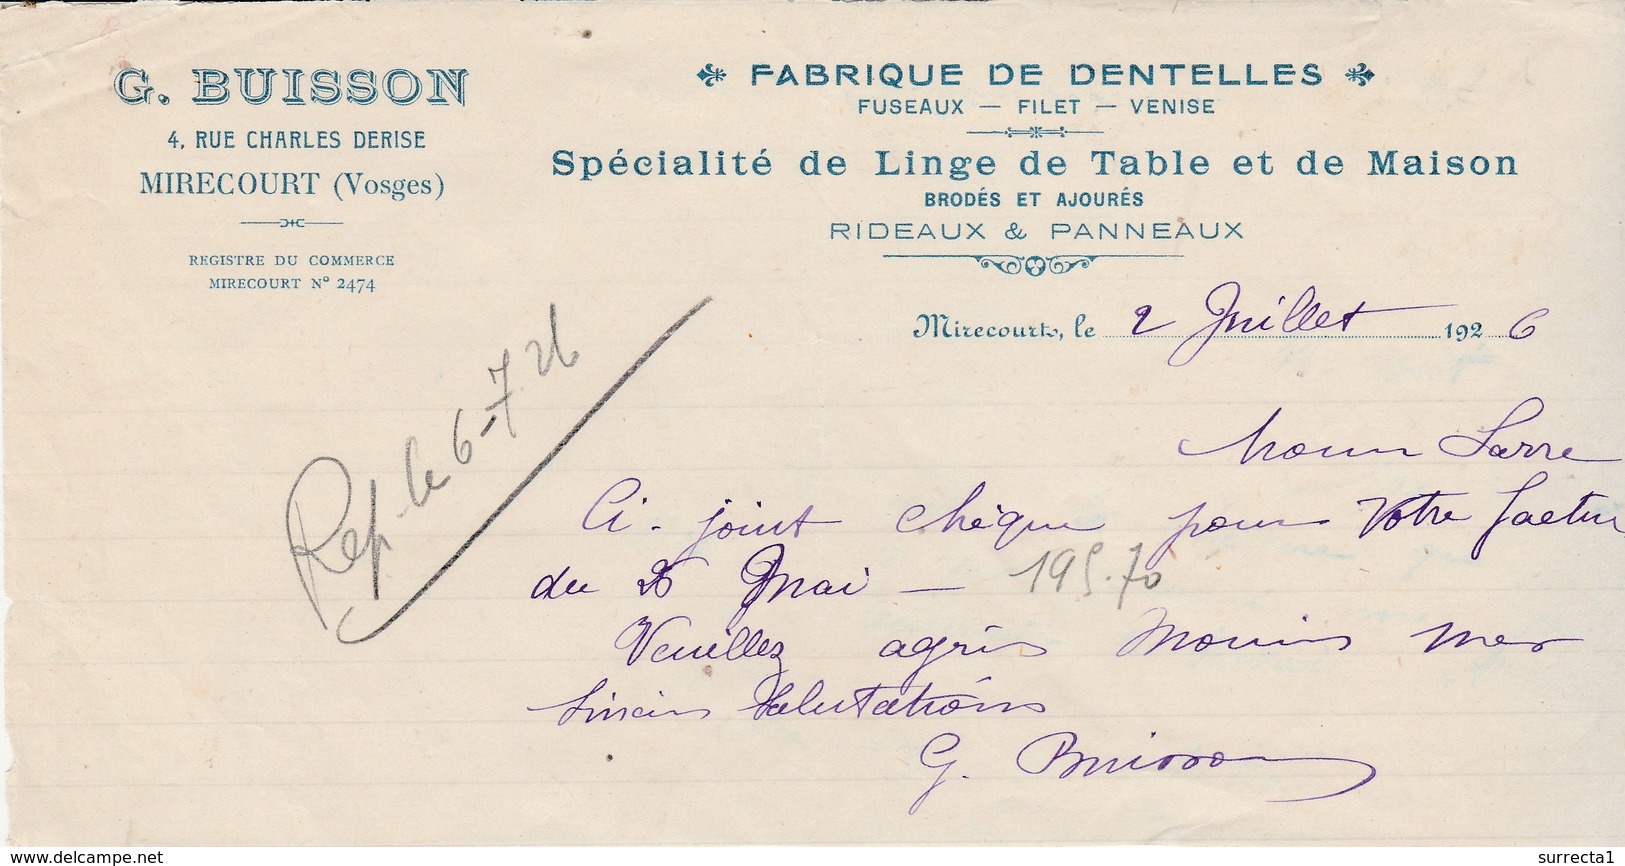 G. BUISSON
4, RUE CHARLES DERISE
MIRECOURT (Vosges)
REGISTRE DU COMMERCE
MIRECOURT N° 2474
FABRIQUE DE DENTELLES
FUSEAUX — FILET — VENISE
Spécialité de Linge de Table et de Maison
BRODÉS ET AJOURÉS
RIDEAUX & PANNEAUX
Mirecourt, le 2 Juillet 1926
Rep. le 6-7-26
Sarre
Ci-joint chèque pour votre factur
du 26 Mai — 195.70
Veuillez agrés mes
salutations
G. Buisson
www.delcampe.net
surrecta1